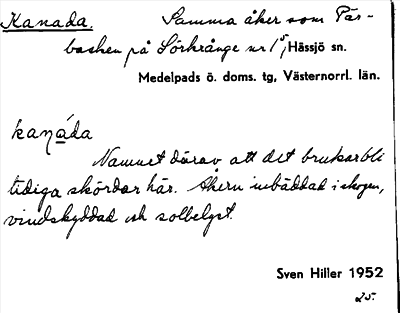 Kanada. Samma åker som Pär-
backen på Sörkrånge nr 1⁵, Hässjö sn.
Medelpads ö. doms. tg, Västernorrl. län.
kanáda
Namnet därav att det brukar bli
tidiga skördar här. Åkern inbäddad i skogen,
vindskyddad och solbelyst.
Sven Hiller 1952
25.